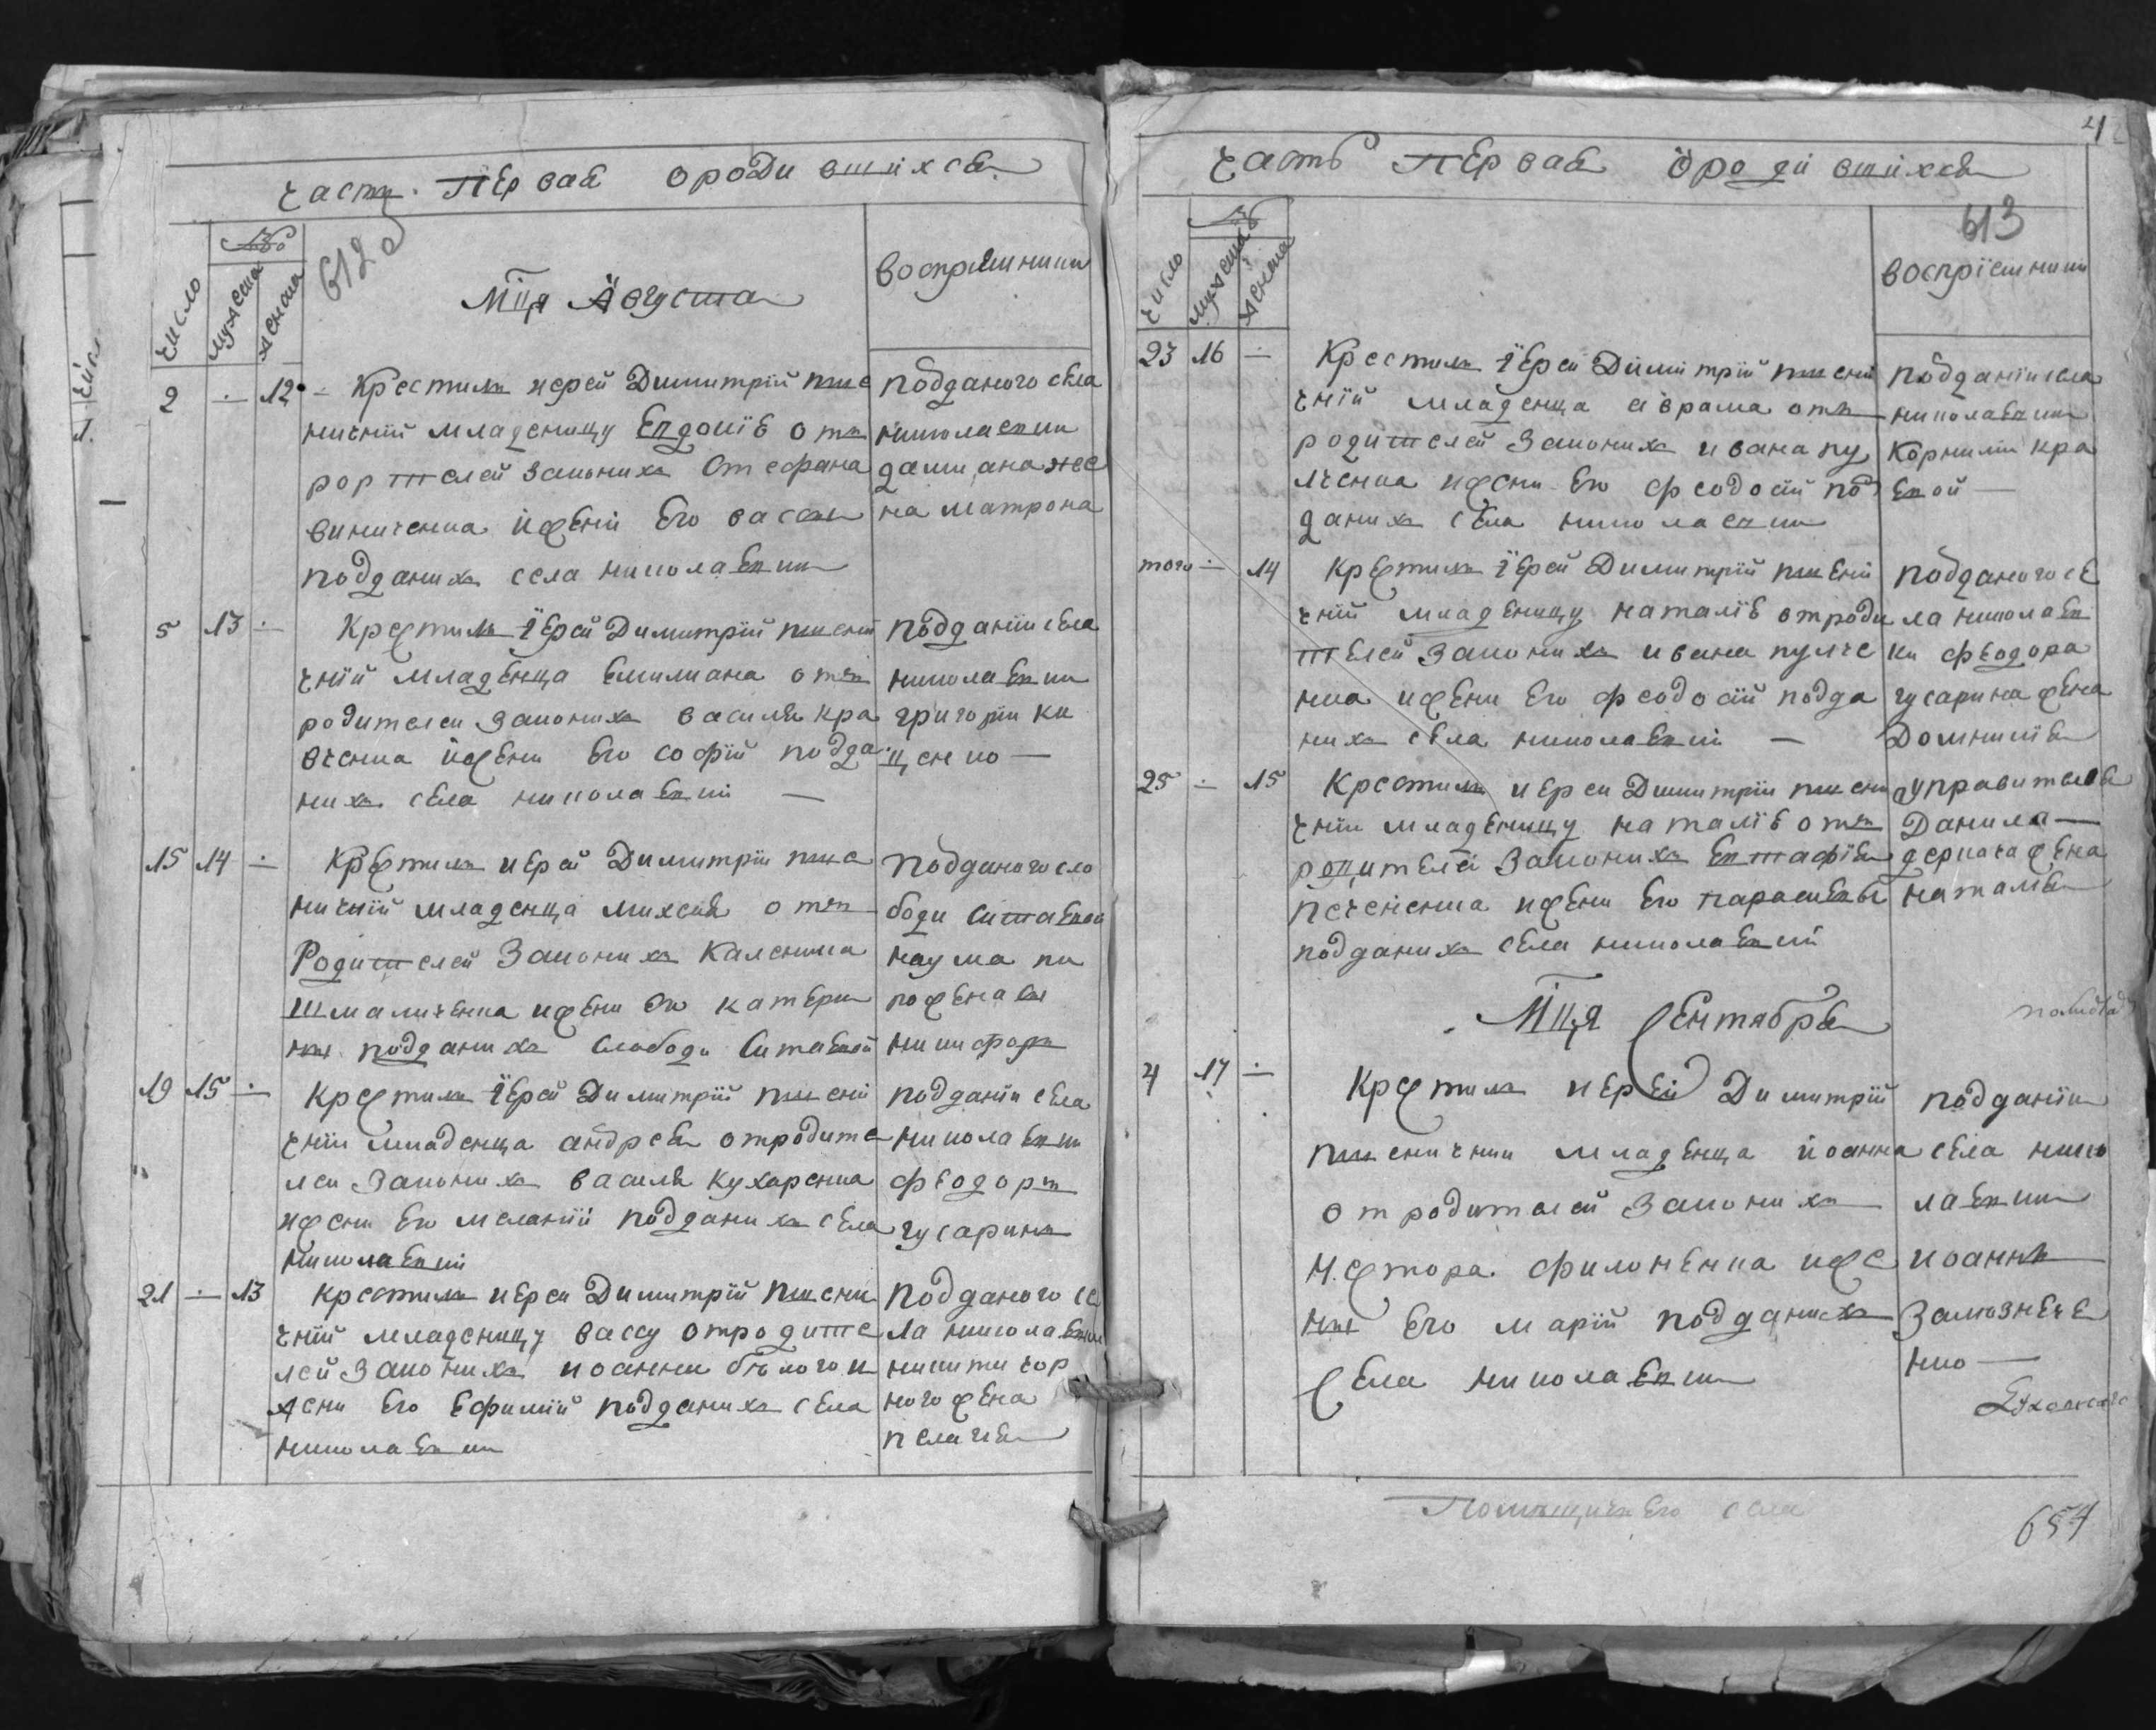 часть Первая ородившихся
612
число
№
мужеска
женска
Мця Августа
воспріемники
2 – 12
Крестилъ иерей Димитрій пше
ничній младеницу Евдокію отъ
родителей законихъ Стефана
виниченка ижени Его вассы
подданихъ села николаевки
подданого села
николаевки
дамиана же
на матрона
5 13 –
Крестилъ іерей Димитрій пшени
чній младенца емилиана отъ
родителей законихъ василя кра
вченка ижени Его софіи подда
нихъ села николаевки –
подданіи села
николаевки
григорій ки
щенко –
15 14 –
Крестилъ иерей Димитрій пше
ничній младенца михея отъ
Родителей Законихъ Каленика
шмаличенка ижени Его катери
ни подданихъ слободи Ситаевой
подданого сло
боди Ситаевой
наума
жена
19 15 –
Крестилъ іерей Димитрій пшени
чній младенца андрея отродите
лей Законихъ василя кухаренка
ижени Его меланіи подданихъ села
николаевки
подданіи села
николаевки
феодоръ
гусаринъ
21 – 13
крестилъ иерей Димитрій пшени
чній младеницу вассу отродите
лей Законихъ иоанна бѣлого и
жени Его Ефиміи подданихъ села
николаевки
подданого се
ла николаевки
никити чор
ного жена
пелагия
4
часть Первая ородившихся
613
число
№
мужеска
женска
воспріемники
23 16 –
Крестилъ іерей Димитрій пшени
чній младенца аврама отъ
родителей Законихъ ивана ку
лченка ижени Его феодосіи под
данихъ села николаевки
подданіи села
николаевки
Корнилій кра
вой –
того – 14
Крестилъ іерей Димитрій пшени
чній младеницу наталію отроди
телей Законихъ ивана кулче
нка ижени Его феодосіи подда
нихъ села николаевки –
подданого се
ла николаев
ки феодора
гусарина жена
Домникія
25 – 15
Крестилъ иерей Димитрій пшени
чній младеницу наталію отъ
родителей Законихъ Евтафія
печененка ижени Его параскевы
подданихъ села николаевки
управителя
Данила –
деркача жена
наталія
Мця Сентября
4 17 –
Крестилъ иерей Димитрій
пшеничній младенца иоанна
отродителей Законихъ
нестора филоненка иже
ни Его маріи подданихъ
Села николаевки
подданіи
села нико
лаевки
иоаннъ
Замознече
нко –
Помѣщика Его села
654